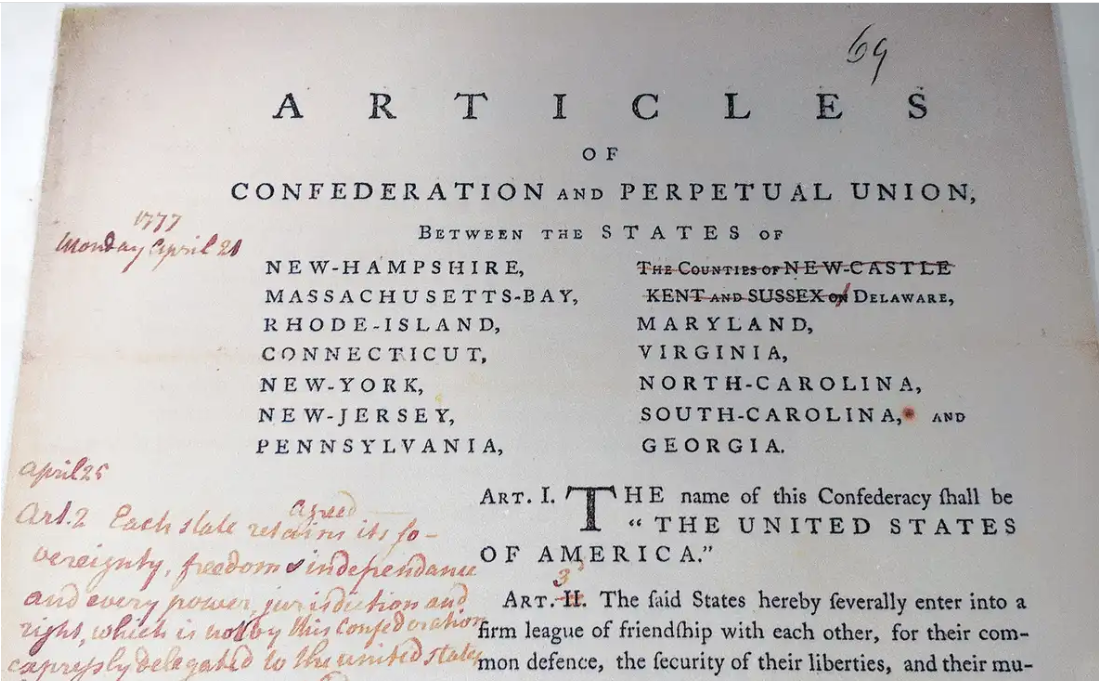 69
A R T I C L E S
OF
CONFEDERATION AND PERPETUAL UNION,
BETWEEN THE STATES OF
1777
Monday April 21
NEW-HAMPSHIRE,
MASSACHUSETTS-BAY,
RHODE-ISLAND,
CONNECTICUT,
NEW-YORK,
NEW-JERSEY,
PENNSYLVANIA,
THE COUNTIES OF NEW-CASTLE
KENT AND SUSSEX ON DELAWARE,
MARYLAND,
VIRGINIA,
NORTH-CAROLINA,
SOUTH-CAROLINA, AND
GEORGIA.
april 25
agreed
Art. 2 Each state retains its so-
vereignty, freedom & independance
and every power, jurisdiction and
right, which is not by this Confederation
expressly delegated to the united states
ART. I. THE name of this Confederacy ſhall be
"THE UNITED STATES
OF AMERICA."
3d
ART. II. The ſaid States hereby ſeverally enter into a
firm league of friendſhip with each other, for their com-
mon defence, the ſecurity of their liberties, and their mu-